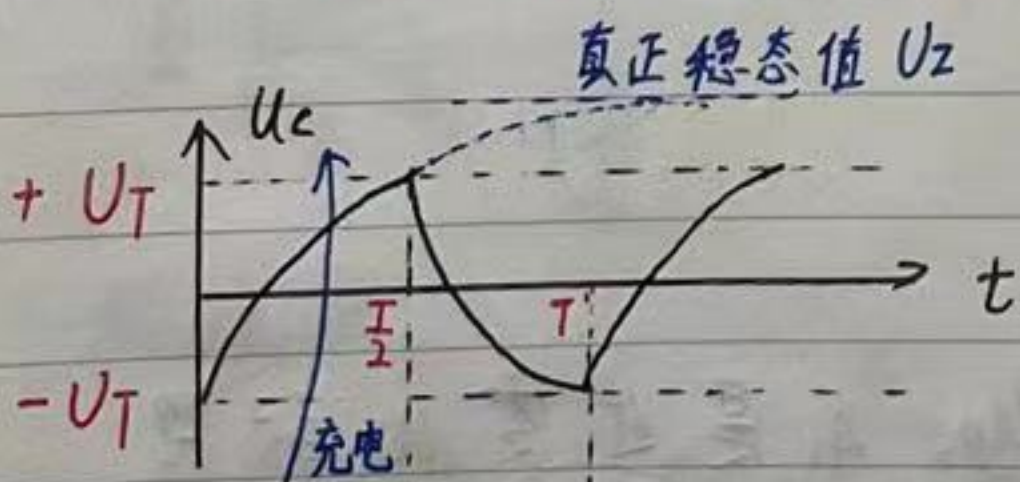 真正稳态值 UZ
Uc
+ UT
t
T/2
T
- UT
充电